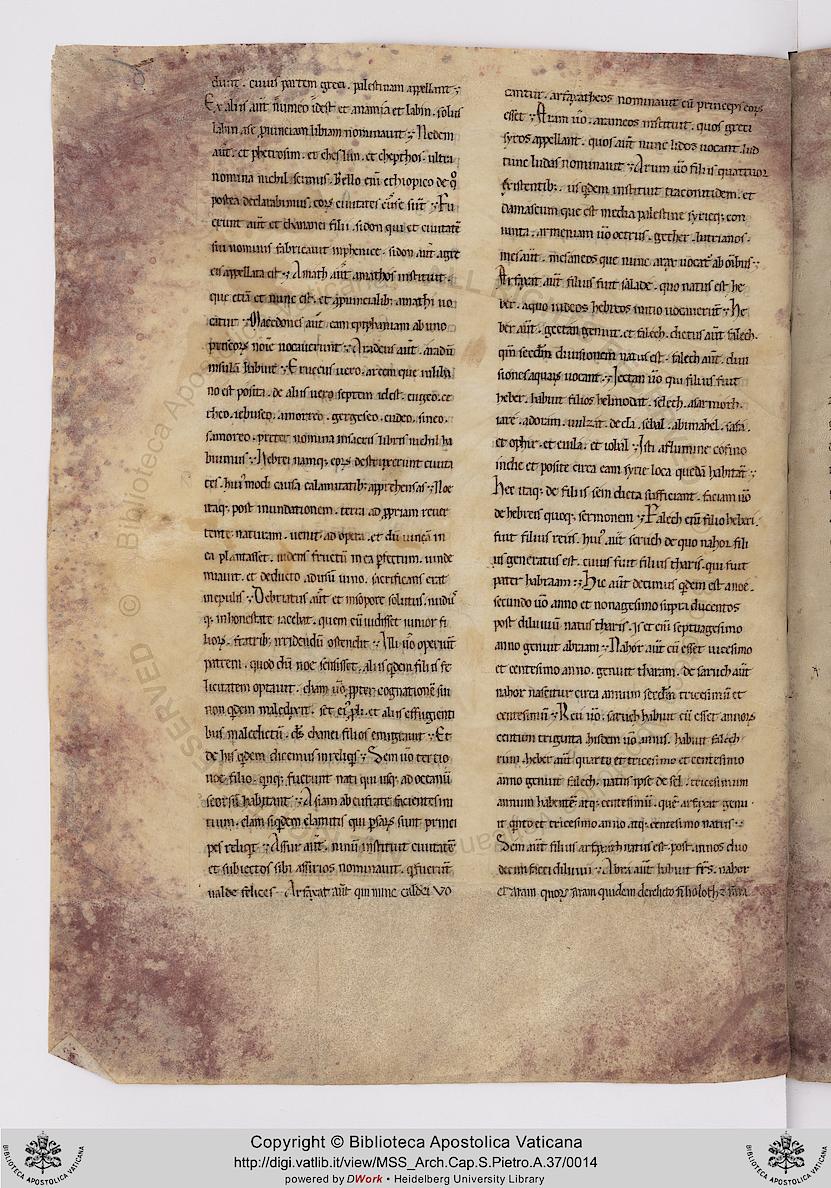 dunt. cuius partem greci. palestinam appellant.
Ex aliis aūt numeo idest et anamia et labin. solus
labin ase puinciam libiam nominauit. Nedem
aūt. et phetrosim. et cheslun. et chepthos. ultra
nomina nichil scimus. Bello enī ethiopico de q̄
postea declarabimus. eoꝝ ciuitates euse sunt. Fu
erunt aūt et chananei filii. sidon qui et ciuitatē
sui nominis fabricauit in phenice. sidon aūt a gre
cis appellata est. Amath aūt amathos instituit.
que etiā et nunc est. et a puincialibꝫ amathi uo
catur. Macedones aūt eam epiphaniam ab uno
priscoꝝ noīe uocauerunt. Aradeus aūt. aradū
insulā habuit. Erucus uero. arcem que in liba
no est posita. de aliis uero septem idest. eugeo. et
cheo. iebuseo. amorreo. gergeseo. eudeo. sineo.
samoreo. preter nomina in sacris libris nichil ha
buimus. Hebrei namqꝫ. eoꝝ destruxerunt ciuita
tes. hui' modi causa calamitatibꝫ apprehensas. Noe
itaqꝫ. post inundationem. terra ad ppriam reuer
tente naturam. uenit ad opera. et dū uineā in
ea plantasset. uidens fructū in ea pfectum. uinde
miauit. et deducto ad usū uino. sacrificans erat
in epulis. Debriatus aūt et in sopore solutus. nudus
qꝫ inhoneste iacebat. quem cū uidisset iunior fi
lioꝝ. fratribꝫ irridendū ostendit. Alli uō operiunt
patrem. quod cū noe sensisset. aliis qdem filiis fe
licitatem optauit. cham uō ppter cognatione sui
non qdem maledixit. set ei' pli. et aliis effugienti
bus maledictū. ds chanei filios emigrauit. Et
de his qdem dicemus in reliqs. Sem uō tercio
noe filio. qnqꝫ fuerunt nati qui usqꝫ ad oceanū
seorsū habitant. Asiam ab eufrate facientes ini
tium. elam siqdem elamitis qui psaꝝ sunt princi
pes reliqt. Assur aūt. niniū instituit ciuitatē
et subiectos sibi assirios nominauit. q fuerunt
ualde felices. Arfaxat aūt qui nunc caldei uo
cantur. arfaxatheos nominauit cū princeps eoꝝ
esset. Aram uō. arameos instituit. quos greci
syros appellant. quos aūt nunc lidos uocant. lud
tunc ludas nominauit. Arum uō filiis quattuor
existentibꝫ. us qdem instituit traconitidem. et
damascum que est media palestine syrieqꝫ con
iuncta. armeniam uō oetrus. gether. butrianos.
mes aūt. mesaneos que nunc arax uocat ab omibus.
Arfaxat aūt filius fuit salade. quo natus est he
ber. a quo iudeos hebreos initio uocauerūt. He
ber aūt. gectan genuit. et falech. dictus aūt falech.
qm secdm diuisionem natus est. falech aūt. diui
siones aquaꝝ uocant. Jectan uō qui filius fuit
heber. habuit filios helmodat. selech. asarmoth.
iare. adoram. uulzit. decla. sebal. abimahel. safa.
et ophir. et euila. et iobal. Isti a flumine cofino
indie et posite circa eam syrie loca quedā habitāt.
Hec itaqꝫ. de filiis sem dicta sufficiant. faciam uō
de hebreis queqꝫ sermonem. Falech enī filio heberi.
fuit filius reus. hui' aūt seruch de quo nahor fili
us generatus est. cuius fuit filius tharis. qui fuit
pater habraam. Hic aūt decimus qdem est a noe.
secundo uō anno et nonagesimo supra ducentos
post diluuiū natus tharis. Is et enī septuagesimo
anno genuit abraam. Nahor aūt cū esset uicesimo
et centesimo anno. genuit tharam. de saruch aūt
nahor nascitur circa annum secdm tricesimū et
centesimū. Reu uō. saruch habuit cū esset annoꝝ
centum triginta hisdem uō annis. habuit falech
rium. heber aūt quarto et tricesimo et centesimo
anno genuit falech. natus ipse de sel. tricesimum
annum habentē atqꝫ centesimū. quē arfaxat genu
it qnto et tricesimo anno atqꝫ centesimo natus.
Sem aūt filius arfaxath natus est. post annos duo
decim facti diluuii. Abrā aūt habuit frs. nahor
et aram quoꝝ aram quidem derelicto filio loth z sara
Copyright © Biblioteca Apostolica Vaticana
http://digi.vatlib.it/view/MSS_Arch.Cap.S.Pietro.A.37/0014
powered by DWork • Heidelberg University Library